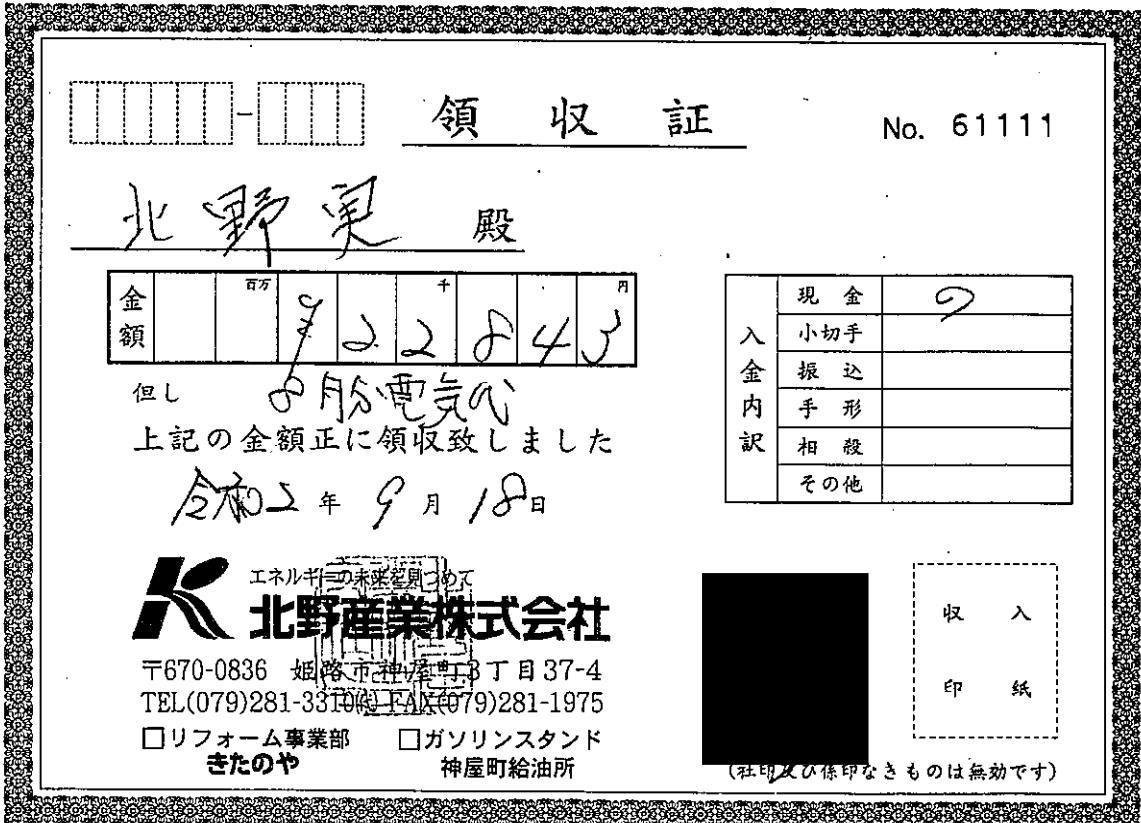 領収証
No. 61111
北野実 殿
金額 百万 千 円
¥22843
但し 8月分電気代
上記の金額正に領収致しました
令和2年9月18日
入金内訳
現金
小切手
振込
手形
相殺
その他
エネルギーの未来を見つめて
北野産業株式会社
〒670-0836 姫路市神屋町3丁目37-4
TEL(079)281-3310㈹ FAX(079)281-1975
□リフォーム事業部 □ガソリンスタンド
きたのや 神屋町給油所
収入
印紙
(社印及び係印なきものは無効です)